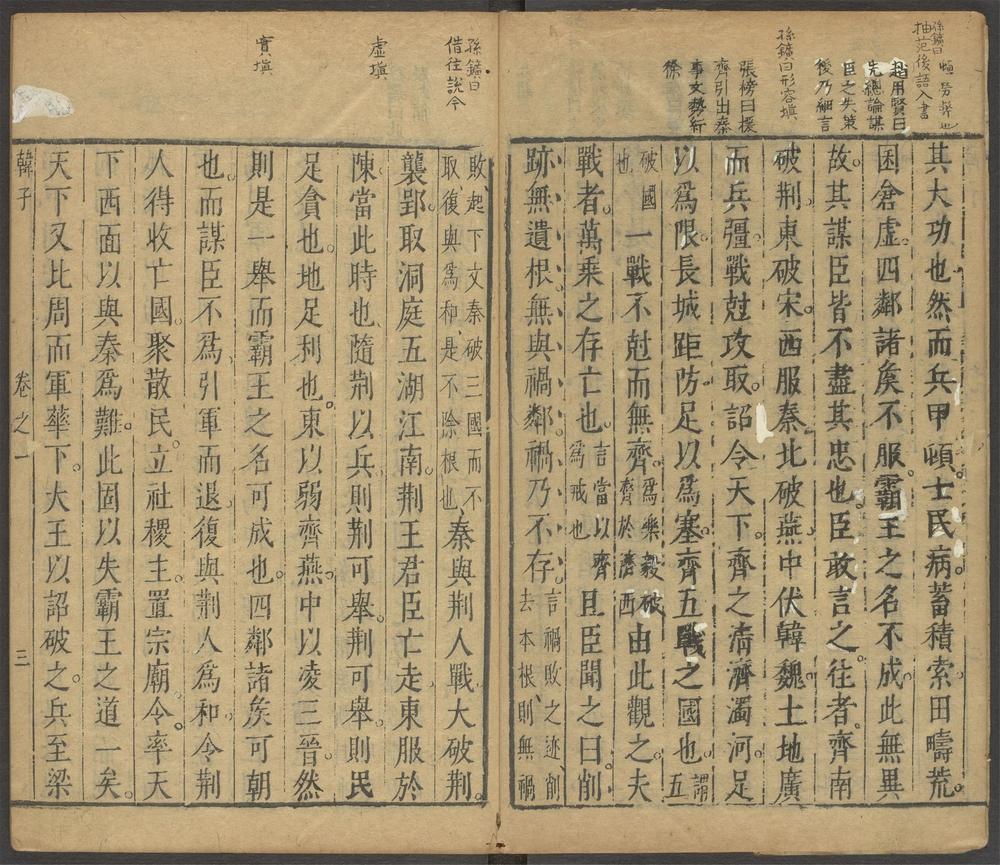 孫鑛曰
抽范後語入書
頓勞弊也
趙用賢曰
先總論謀
臣之失策
後乃細言
孫鑛曰形容塡
張榜曰援
齊引出秦
事文勢紆
徐
其大功也然而兵甲頓。士民病。蓄積索。田疇荒。
囷倉虛。四鄰諸矦不服。霸王之名不成。此無異
故。其謀臣皆不盡其忠也。臣敢言之。往者齊南
破荆。東破宋。西服秦。北破燕。中伏韓魏。土地廣
而兵彊。戰尅攻取。詔令天下。齊之淸濟濁河足
以爲限。長城距防足以爲塞。齊五戰之國也。謂五
破國也一戰不尅而無齊。爲樂毅破齊於濟西由此觀之。夫
戰者。萬乘之存亡也。言當以齊爲戒也且臣聞之曰。削
跡無遺根。無與禍鄰。禍乃不存。言禍敗之迹、削去本根、則無禍
孫鑛曰
借往說今
虛塡
實塡
敗、起下文秦破三國而不取復與爲和、是不除根也秦與荆人戰。大破荆。
襲郢。取洞庭五湖江南。荆王君臣亡走。東服於
陳。當此時也。隨荆以兵。則荆可舉。荆可舉。則民
足貪也。地足利也。東以弱齊燕。中以凌三晉。然
則是一舉而霸王之名可成也。四鄰諸矦可朝
也。而謀臣不爲。引軍而退。復與荆人爲和。令荆
人得收亡國。聚散民。立社稷主。置宗廟。令率天
下西面以與秦爲難。此固以失霸王之道一矣。
天下又比周而軍華下。大王以詔破之。兵至梁
韓子　卷之一　三